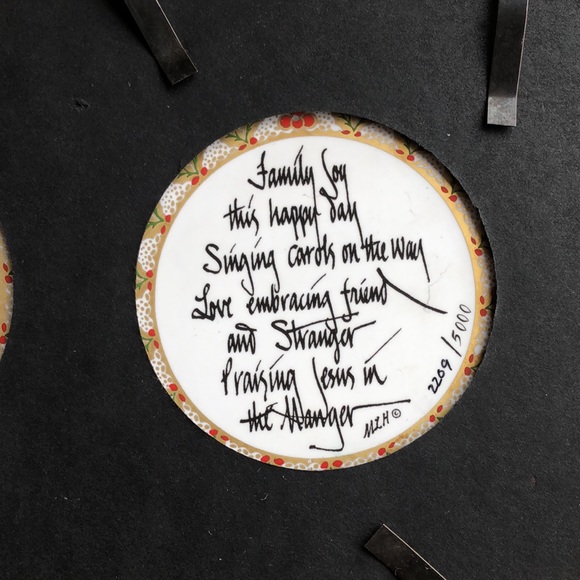 Family Joy
this happy day
Singing carols on the way
Love embracing friend
and Stranger
Praising Jesus in
the Manger
MLH ©
2209/5000